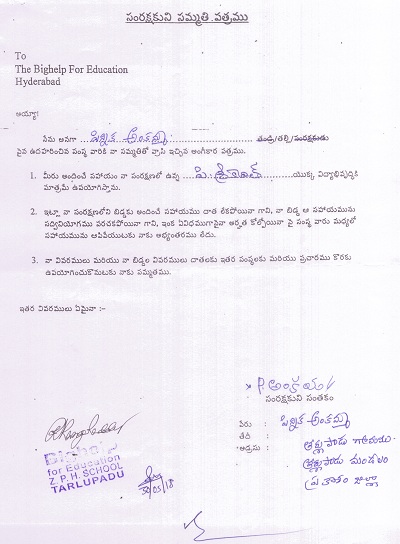 సంరక్షకుని సమ్మతి పత్రము
To
The Bighelp For Education
Hyderabad
అయ్యా!
నేను అనగా పిన్నిక అంకమ్మ తండ్రి/తల్లి/సంరక్షకుడు
పైన ఉదహరించిన సంస్థ వారికి నా సమ్మతితో వ్రాసి ఇచ్చిన అంగీకార పత్రము.
1. మీరు అందించే సహాయం నా సంరక్షణలో ఉన్న పి. శ్రీకాంత్ యొక్క విద్యాభివృద్ధికి
మాత్రమే ఉపయోగిస్తాను.
2. ఇట్లూ నా సంరక్షణలోని బిడ్డకు అందించే సహాయము దాత లేకపోయినా గాని, నా బిడ్డ ఆ సహాయమును
సద్వినియోగము పరచకపోయినా గాని, ఇంక ఏవిధముగానైనా అర్హత కోల్పోయినా పై సంస్థ వారు మధ్యలో
సహాయమును ఆపివేయుటకు నాకు అభ్యంతరము లేదు.
3. నా వివరములు మరియు నా బిడ్డల వివరములు దాతలకు ఇతర సంస్థలకు మరియు ప్రచారము కొరకు
ఉపయోగించుకొనుటకు నాకు సమ్మతము.
ఇతర వివరములు ఏమైనా :-
P. అంకమ్మ
సంరక్షకుని సంతకం
పేరు : పిన్నిక అంకమ్మ
తేది :
అడ్రసు : తర్లుపాడు గ్రామము
తర్లుపాడు మండలం
ప్రకాశం జిల్లా
Bighelp
for Education
Z. P. H. SCHOOL
TARLUPADU